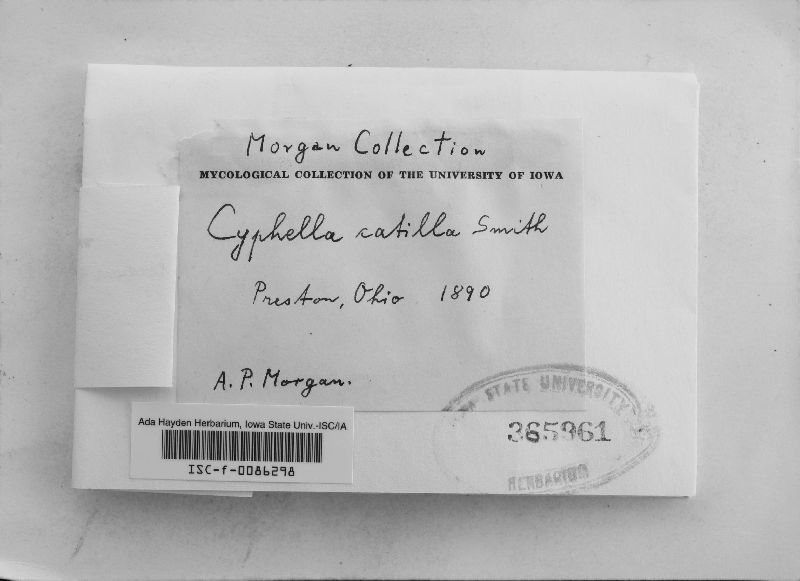 Morgan Collection
MYCOLOGICAL COLLECTION OF THE UNIVERSITY OF IOWA
Cyphella catilla Smith
Preston, Ohio 1890
A. P. Morgan.
Ada Hayden Herbarium, Iowa State Univ.-ISC/IA
ISC-f-0086298
STATE UNIVERSITY
365961
HERBARIUM